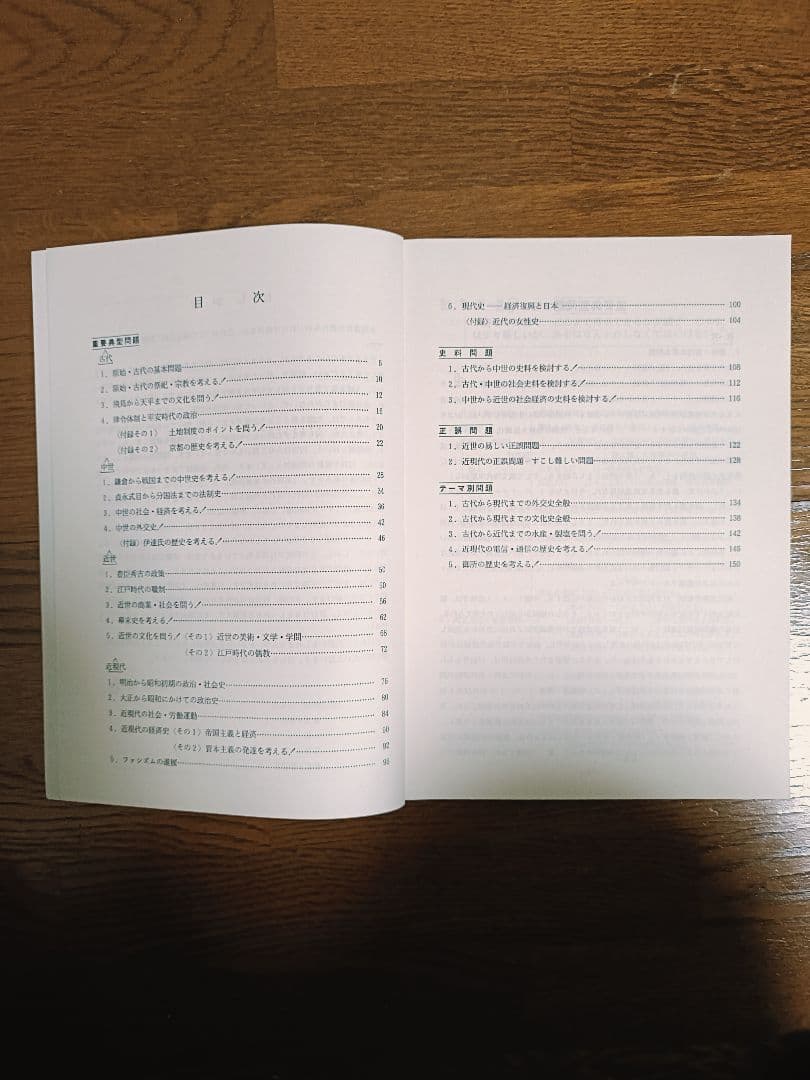 目　次
重要典型問題
古代
1．原始・古代の基本問題 5
2．原始・古代の祭祀・宗教を考える！ 10
3．飛鳥から天平までの文化を問う！ 12
4．律令体制と平安時代の政治
（付録その1）　土地制度のポイントを問う！ 20
（付録その2）　京都の歴史を考える！ 22
中世
1．鎌倉から戦国までの中世史を考える！
2．貞永式目から分国法までの法制史
3．中世の社会・経済を考える！ 36
4．中世の外交史！ 42
（付録）伊達氏の歴史を考える！ 46
近世
1．豊臣秀吉の政策
2．江戸時代の職制
3．近世の商業・社会を問う！ 56
4．幕末史を考える！ 62
5．近世の文化を問う！（その1）近世の美術・文学・学問 68
（その2）江戸時代の儒教 72
近現代
1．明治から昭和初期の政治・社会史 76
2．大正から昭和にかけての政治史 80
3．近現代の社会・労働運動 84
4．近現代の経済史（その1）帝国主義と経済 90
（その2）資本主義の発達を考える！ 92
5．ファシズムの進展
6．現代史——経済復興と日本 100
（付録）近代の女性史 104
史料問題
1．古代から中世の史料を検討する！ 108
2．古代・中世の社会史料を検討する！ 112
3．中世から近世の社会経済の史料を検討する！ 116
正誤問題
1．近世の易しい正誤問題 122
2．近現代の正誤問題—すこし難しい問題 128
テーマ別問題
1．古代から現代までの外交史全般 134
2．古代から現代までの文化史全般 138
3．古代から近代までの水産・製塩を問う！ 142
4．近現代の電信・通信の歴史を考える！ 146
5．御所の歴史を考える！ 150